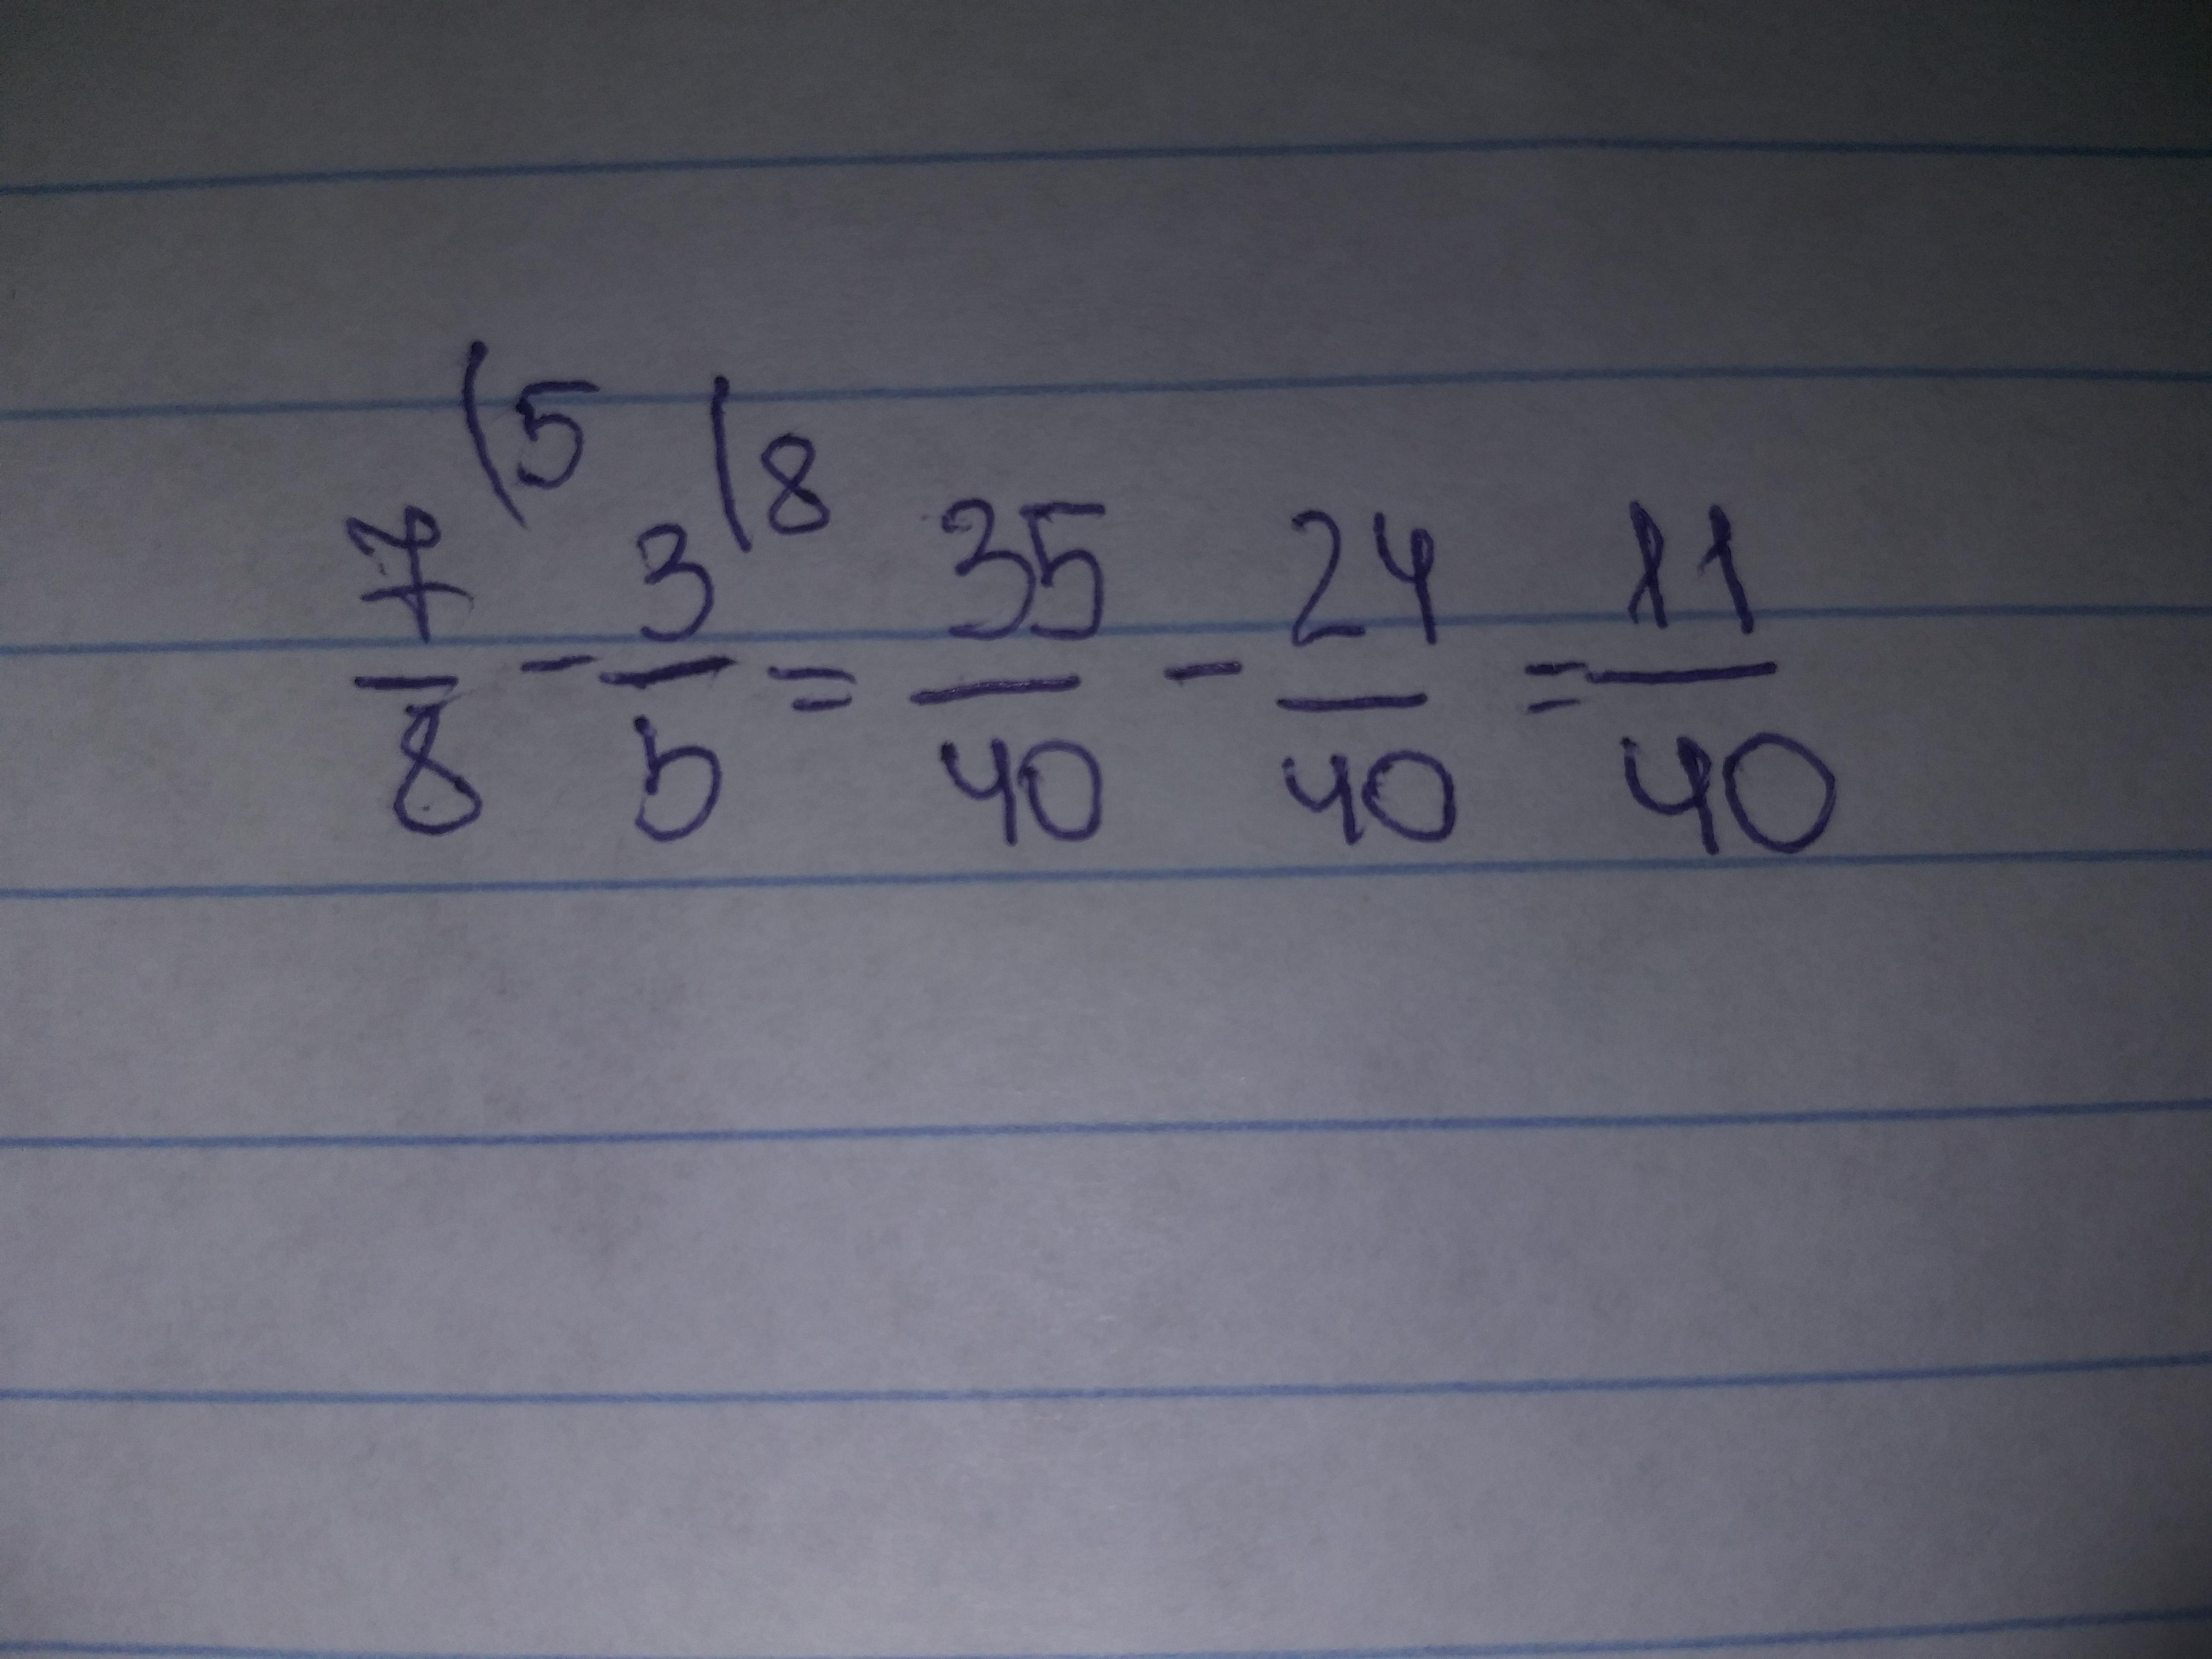 7/8 (5 - 3/5 (8 = 35/40 - 24/40 = 11/40